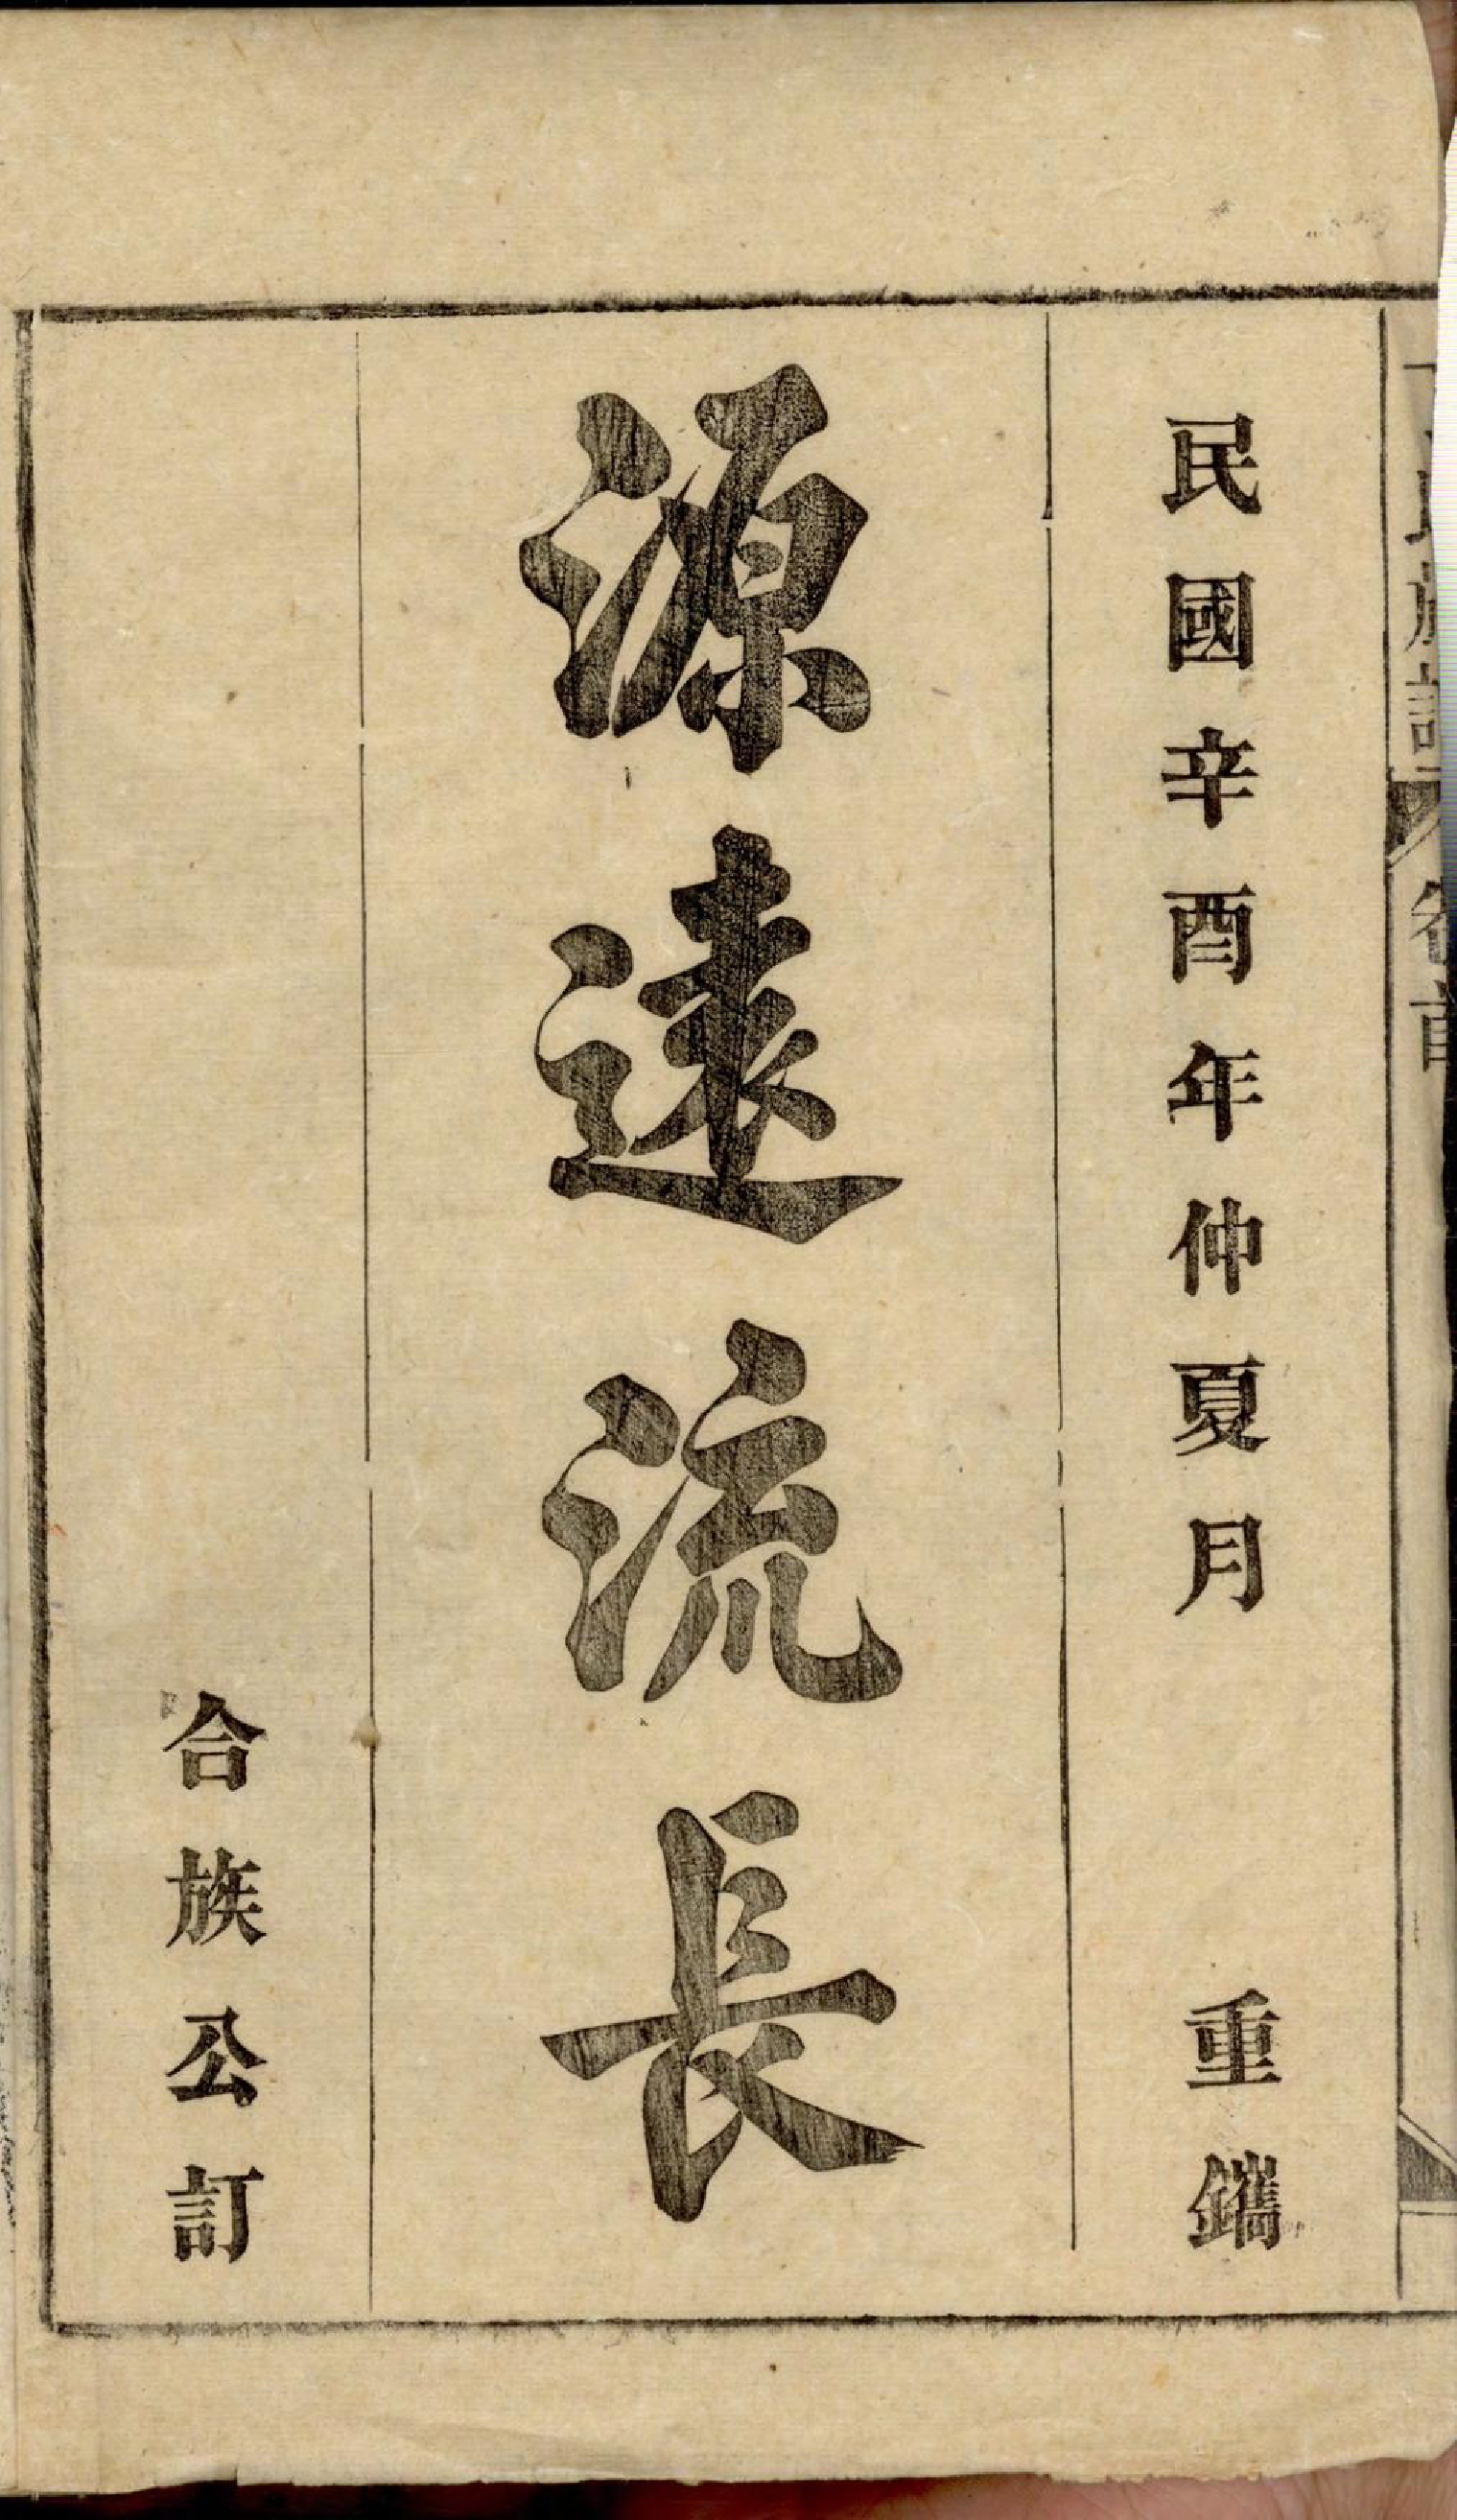 民國辛酉年仲夏月 重鐫
源遠流長
合族公訂
卷首